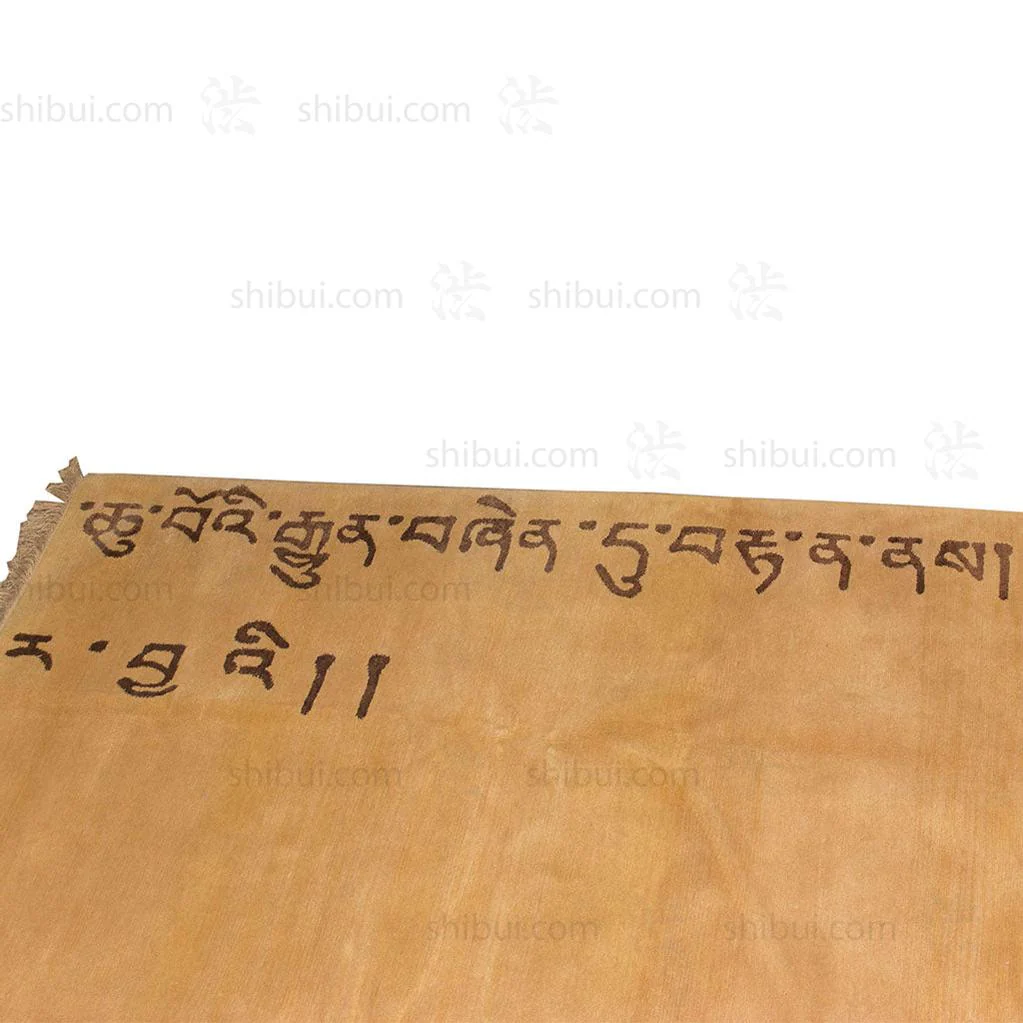 shibui.com 渋 shibui.com 渋
shibui.com 渋 shibui.com 渋
shibui.com 渋 shibui.com 渋
་ཆུ་བོའི་རྒྱུན་བཞིན་དུ་བརྟ་ན་ནས།
shibui.com shibui.com
ར་བྱ འི།།
shibui.com shibui.com
shibui.com shibui.com